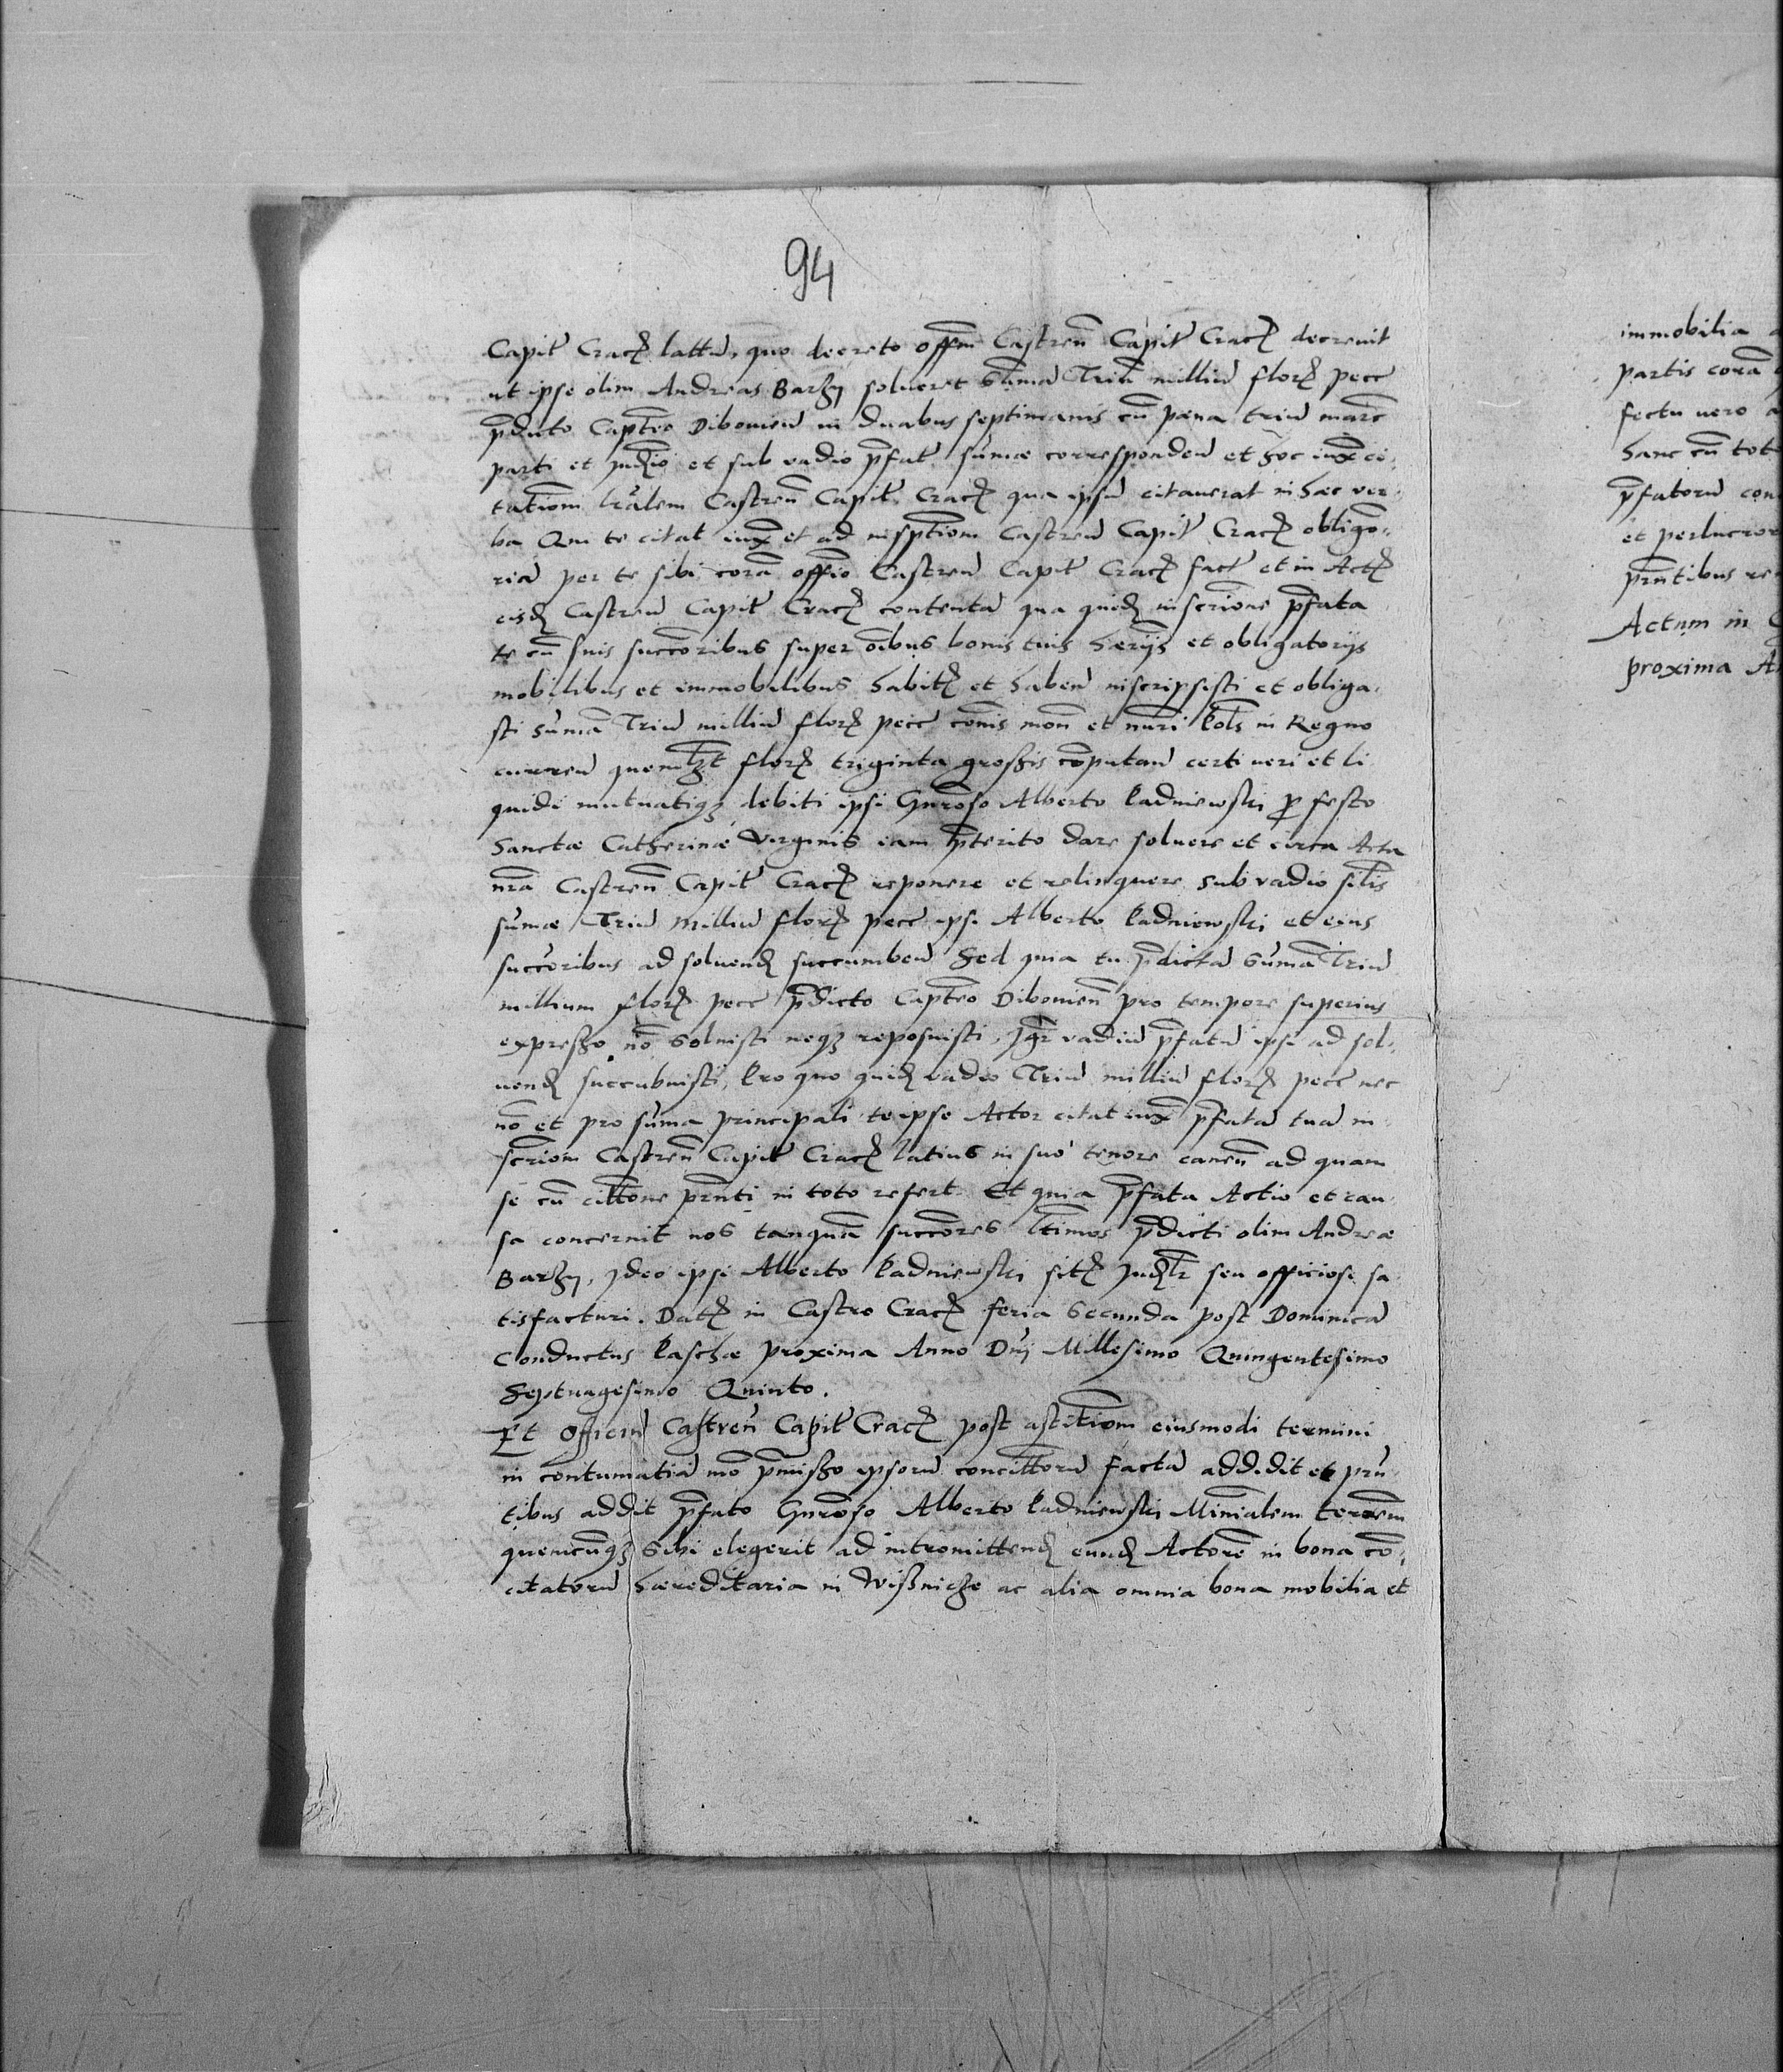 94
Capit Crac lattu, quo decreto offm Castren Capit Crac decrevit
ut ipse olim Andreas Barzy solveret sūmā Triū milliū flor pecc
pdicto Capteo Diboviēn in duabus septimanis cū pæna triū marc
parti et Judio et sub vadio pfat sūmæ corresponden et hoc iux ci,
tationem lralem Castren Capit Crac qua ipsū citauerat in hæc ver,
ba Qui te citat iux et ad inscptiom Castren Capit Crac obligō,
riā per te sibi corā offio Castren Capit Crac fact et in Act
eisd Castren Capit Crac contentā qua quid inscrione pfata
te cū suis succōribus super oībus bonis tuis hæriis et obligatorijs
mobilibus et immobilibus habit et haben inscripsisti et obliga,
sti sūmā Triū milliū flor pecc cōmis mon et nūri Pols in Regno
curren quemlzt flor triginta grossis cōputan certi veri et li
quidi mutuatiqz debiti ipsi Gnroso Alberto Kadniewski p festo
Sanctæ Catherinæ Virginis iam pterito dare solvere et circa Acta
nra Castren Capit Crac reponere et relinquere sub vadio silis
sūmæ Triū Milliū flor pecc ipsi Alberto Kadniewski et eius
succōribus ad soluend succumben Sed quia tu pdictā sūmā Triū
millium flor pecc pdicto Capteo Diboviēn pro tempore superius
expresso nō solvisti neqz reposuisti, Igr vadiū pfatū ipsi ad sol,
uend succubuisti, Pro quo quid vadio Triū milliū flor pecc nec
nō et pro sūma principali te ipse Actor citat iux pfatā tuā in
scriom Castren Capit Crac latius in suo tenore canen ad quam
se cū cittone prnti in toto refert. Et quia pfata Actio et cau
sa concernit nos tanquā succōres ltimos pdicti olim Andreæ
Barzy, Ideo ipsi Alberto Kadniewski sit Judlr seu officiose sa
tisfacturi. Dat in Castro Crac feria Secunda post Dominicā
Conductus Paschæ proxima Anno Dni Millesimo Quingentesimo
Septuagesimo Quinto.
Et Officiū Castren Capit Crac post astitiom eiusmodi termini
in contumatiā mō pmisso ipsorū concittorū factā addidit et prn
tibus addit pfato Gnroso Alberto Kadniewski Minialem terrem
quemcunqz sibi elegerit ad intromittend eund Actorē in bona cō,
citatorū hæreditaria in Wisnicze ac alia omnia bona mobilia et
immobilia
partis corā
fectu vero
hanc cū tot
pfatorū con
et perlucror
prntibus re
Actum in
proxima A